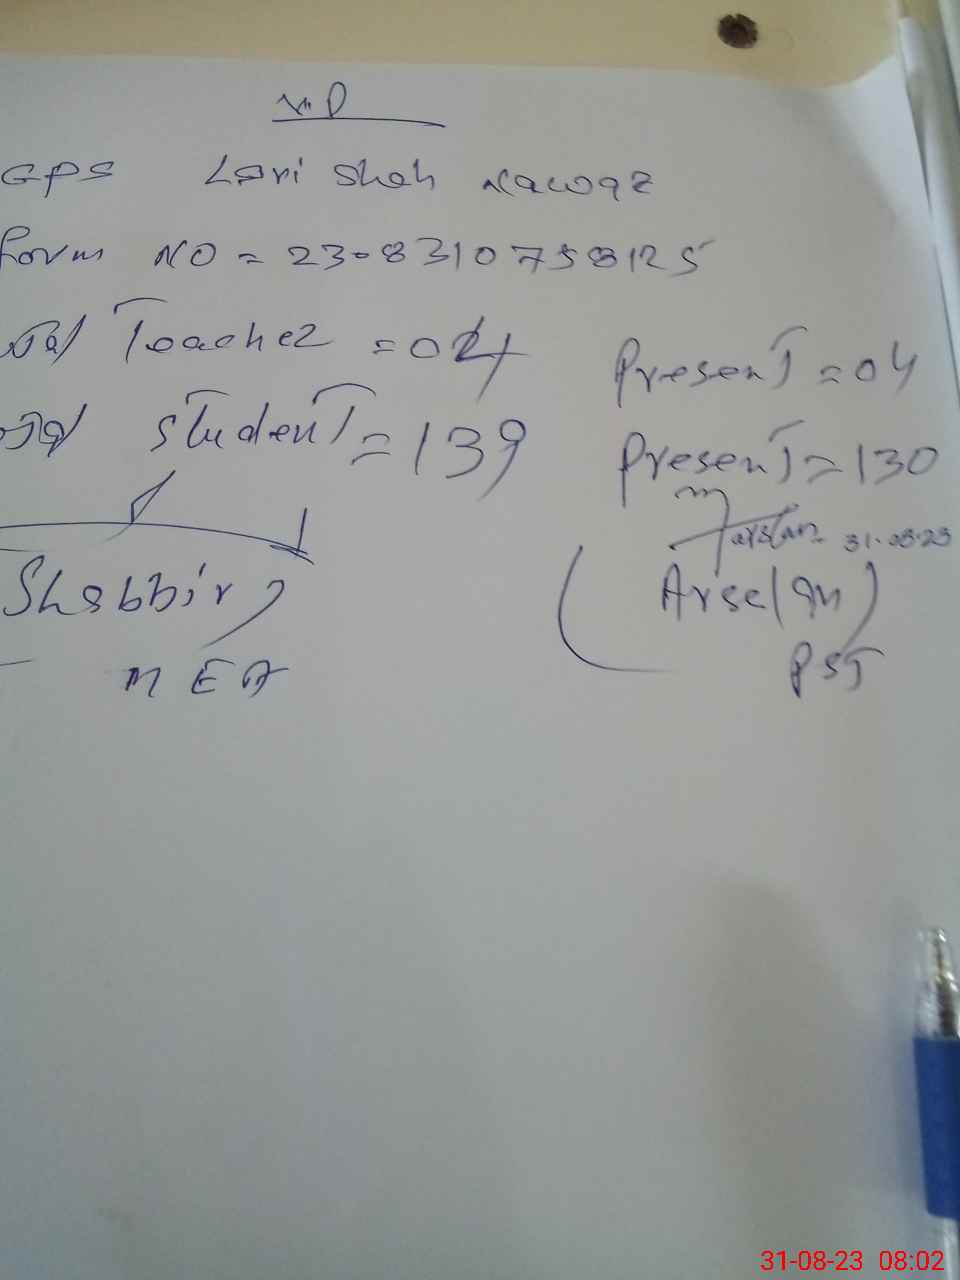 GPS Lari Shah Nawaz
Form NO = 2308310758125
Total Teacher = 04 Present = 04
Total student = 139 Present = 130
Arslan 31.08.23
Shabbir) (Arselan)
MEA PST
31-08-23 08:02